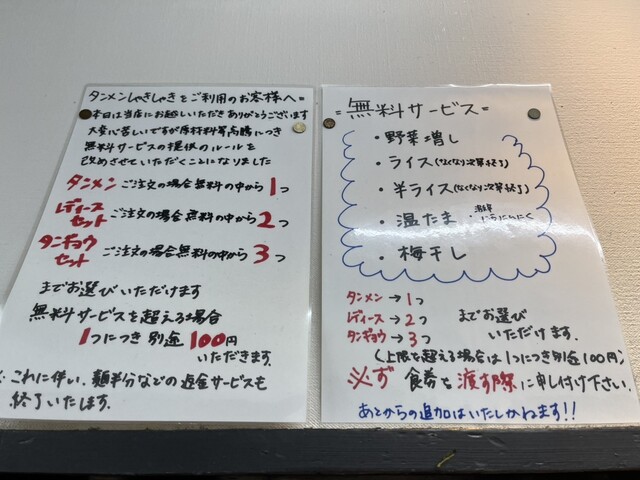 タンメンしゃきしゃきをご利用のお客様へ=
本日は当店にお越しいただきありがとうございます
大変心苦しいですが原材料等高騰につき
無料サービスの提供のルールを
改めさせていただくことになりました
タンメン ご注文の場合無料の中から1つ
レディースセット ご注文の場合無料の中から2つ
タンギョウセット ご注文の場合無料の中から3つ
までお選びいただけます
無料サービスを超える場合
1つにつき別途100円
いただきます.
※これに伴い、麺半分などの返金サービスも
終了いたします.
=無料サービス=
・野菜増し
・ライス(なくなり次第終了)
・半ライス(なくなり次第終了)
・温たま ・にらにんにく
・梅干し
タンメン→1つ
レディース→2つ
タンギョウ→3つ
までお選び
いただけます.
(上限を超える場合は1つにつき別途100円)
必ず 食券を渡す際に申し付け下さい.
あとからの追加はいたしかねます!!